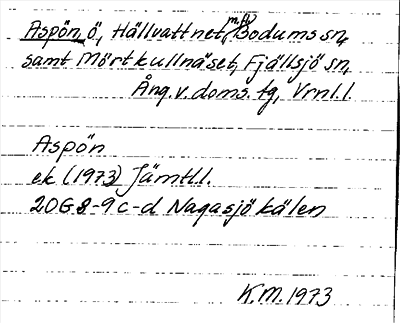 Aspön, ö, Hällvattnet, Bodums sn,
samt Mörtkullnäset, Fjällsjö sn,
Ång.v.doms.tg, Vrnl.l.
Aspön
ek (1973) Jämtl.l.
20G 8-9 c-d Nagasjökälen
K.M. 1973